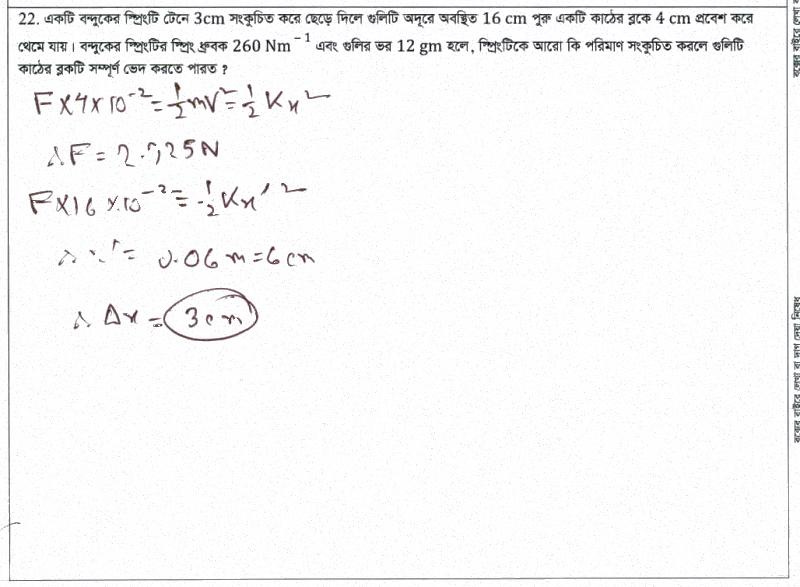 22. একটি বন্দুকের স্প্রিংটি টেনে 3cm সংকুচিত করে ছেড়ে দিলে গুলিটি অদূরে অবস্থিত 16 cm পুরু একটি কাঠের ব্লকে 4 cm প্রবেশ করে
থেমে যায়। বন্দুকের স্প্রিংটির স্প্রিং ধ্রুবক 260 Nm⁻¹ এবং গুলির ভর 12 gm হলে, স্প্রিংটিকে আরো কি পরিমাণ সংকুচিত করলে গুলিটি
কাঠের ব্লকটি সম্পূর্ণ ভেদ করতে পারত ?
F×4×10⁻² = ½mv² = ½Kx²
∴ F = 2.925N
F×16×10⁻² = ½Kx'²
∴ x' = 0.06 m = 6cm
∴ Δx = 3cm